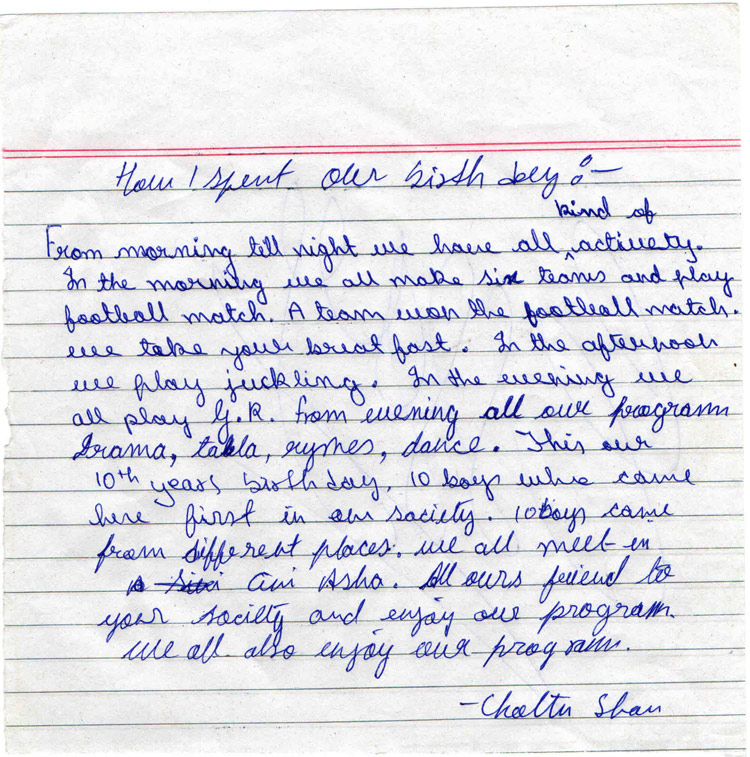 How I spent our birth day :-
kind of
From morning till night we have all activety.
In the morning we all make six teams and play
football match. A team won the football match.
we take your breakfast. In the afternoon
we play juckling. In the evening we
all play G.K. from evening all our program
Drama, tabla, rymes, dance. This our
10th years birthday, 10 boys who came
here first in our society. 10 boys came
from different places. we all meet in
Asha. All ours friend to
your society and enjoy our program.
we all also enjoy our program.
-Choltu Shau